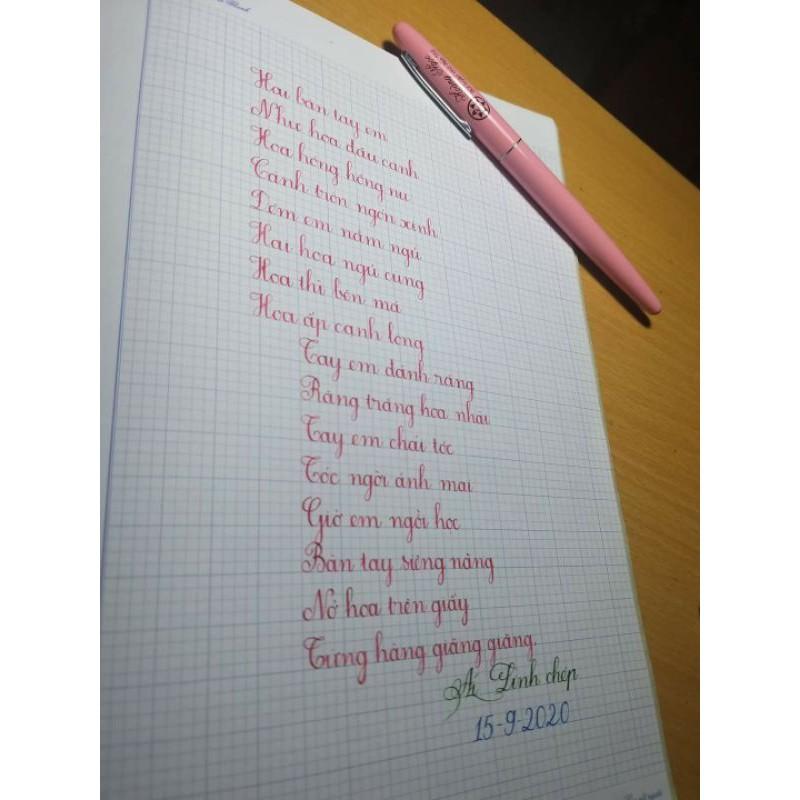 Hai bàn tay em
Như hoa đầu cành
Hoa hồng hồng nụ
Cánh tròn ngón xinh
Đêm em nằm ngủ
Hai hoa ngủ cùng
Hoa thì bên má
Hoa ấp cạnh lòng
Tay em đánh răng
Răng trắng hoa nhài
Tay em chải tóc
Tóc ngời ánh mai
Giờ em ngồi học
Bàn tay siêng năng
Nở hoa trên giấy
Từng hàng giăng giăng.
Ái Linh chép
15-9-2020